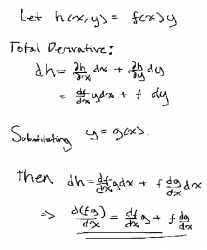 Let h(x,y) = f(x)y
Total Derivative:
dh = ∂h/∂x dx + ∂h/∂y dy
= df/dx y dx + f dy
Substituting y = g(x).
Then dh = df/dx g dx + f dg/dx dx
⇒ d(fg)/dx = df/dx g + f dg/dx